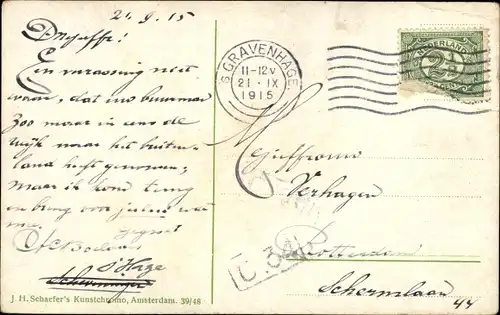 21.9.15
Een verassing niet
waar, dat uw buurman
zoo maar in eens de
wijk naar het buiten-
land heeft genomen,
maar ik kom terug
en breng voor jullie wat
me.
Gegroet
s'Hage
Scheveningen
J. H. Schaefer's Kunstchromo, Amsterdam. 39/48
'S GRAVENHAGE
11-12V
21 . IX
1915
NEDERLAND
2½
Mejuffrouw
Verhagen
Rotterdam
Schermlaan
44